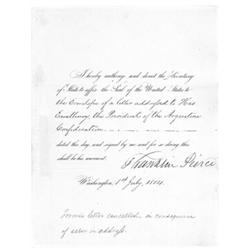 I hereby authorize and direct the Secretary
of State to affix the Seal of the United States to
the Envelope of a letter addressed to His
Excellency the President of the Argentine
Confederation
dated this day and signed by me and for so doing this
shall be his warrant.
Franklin Pierce
Washington, 1st July, 1854.
Former letter cancelled in consequence
of error in address.